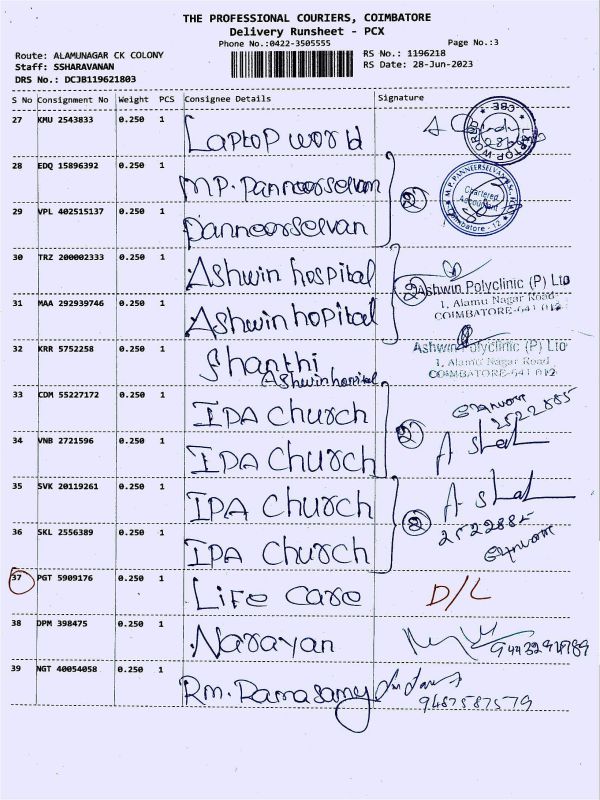 THE PROFESSIONAL COURIERS, COIMBATORE
Delivery Runsheet - PCX
Phone No.:0422-3505555
Page No.:3
Route: ALAMUNAGAR CK COLONY
RS No.: 1196218
Staff: SSHARAVANAN
RS Date: 28-Jun-2023
DRS No.: DCJB119621803
S No Consignment No Weight PCS Consignee Details Signature
27 KMU 2543833 0.250 1 Laptop world
28 EDQ 15896392 0.250 1 M.P. Panneerselvam
M. P. PANNEERSELVAM
Chartered
Accountant
Coimbatore - 12
29 VPL 402515137 0.250 1 Panneerselvan
2
30 TRZ 200002333 0.250 1 Ashwin hospital
31 MAA 292939746 0.250 1 Ashwin hopital
2
Ashwin Polyclinic (P) Ltd
1, Alamu Nagar Road
COIMBATORE-641 012
32 KRR 5752258 0.250 1 Shanthi
Ashwin hospital
Ashwin Polyclinic (P) Ltd
1, Alamu Nagar Road
COIMBATORE-641 012
33 CDM 55227172 0.250 1 IPA Church
2522885
34 VNB 2721596 0.250 1 IPA Church
2
35 SVK 20119261 0.250 1 IPA Church
36 SKL 2556389 0.250 1 IPA Church
2
2522885
37 PGT 5909176 0.250 1 Life care D/L
38 DPM 398475 0.250 1 Narayan
39 NGT 40054058 0.250 1 Rm. Ramasamy
9487587579